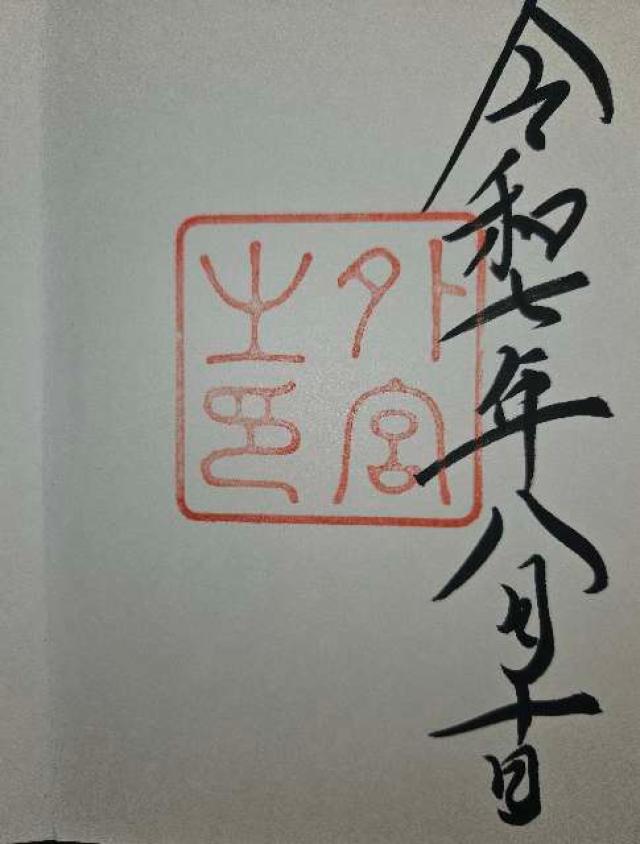 令和七年八月十日
外宮
之印